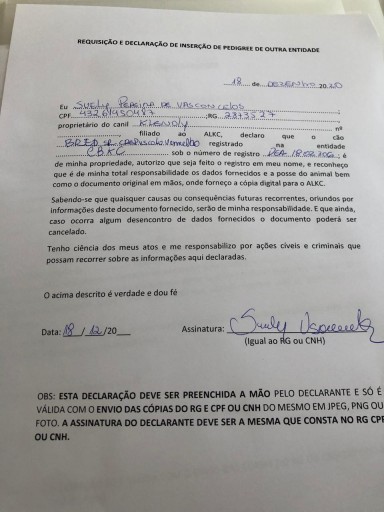 REQUISIÇÃO E DECLARAÇÃO DE INSERÇÃO DE PEDIGREE DE OUTRA ENTIDADE
18 de DEZEMBRO 2020
Eu SUELY PEREIRA DE VASCONCELOS
CPF ;RG
proprietário do canil nº
, filiado ao ALKC, declaro que o cão
registrado na entidade
CBKC sob o número de registro ; é
de minha propriedade, autorizo que seja feito o registro em meu nome, e reconheço
que é de minha total responsabilidade os dados fornecidos e a posse do animal bem
como o documento original em mãos, onde forneço a cópia digital para o ALKC.
Sabendo-se que quaisquer causas ou consequências futuras recorrentes, oriundos por
informações deste documento fornecido, serão de minha responsabilidade. E que ainda,
caso ocorra algum desencontro de dados fornecidos o documento poderá ser
cancelado.
Tenho ciência dos meus atos e me responsabilizo por ações cíveis e criminais que
possam recorrer sobre as informações aqui declaradas.
O acima descrito é verdade e dou fé
Data: 18 / 12 /20__ Assinatura: Suely
(Igual ao RG ou CNH)
OBS: ESTA DECLARAÇÃO DEVE SER PREENCHIDA A MÃO PELO DECLARANTE E SÓ É
VÁLIDA COM O ENVIO DAS CÓPIAS DO RG E CPF OU CNH DO MESMO EM JPEG, PNG OU
FOTO. A ASSINATURA DO DECLARANTE DEVE SER A MESMA QUE CONSTA NO RG CPF
OU CNH.